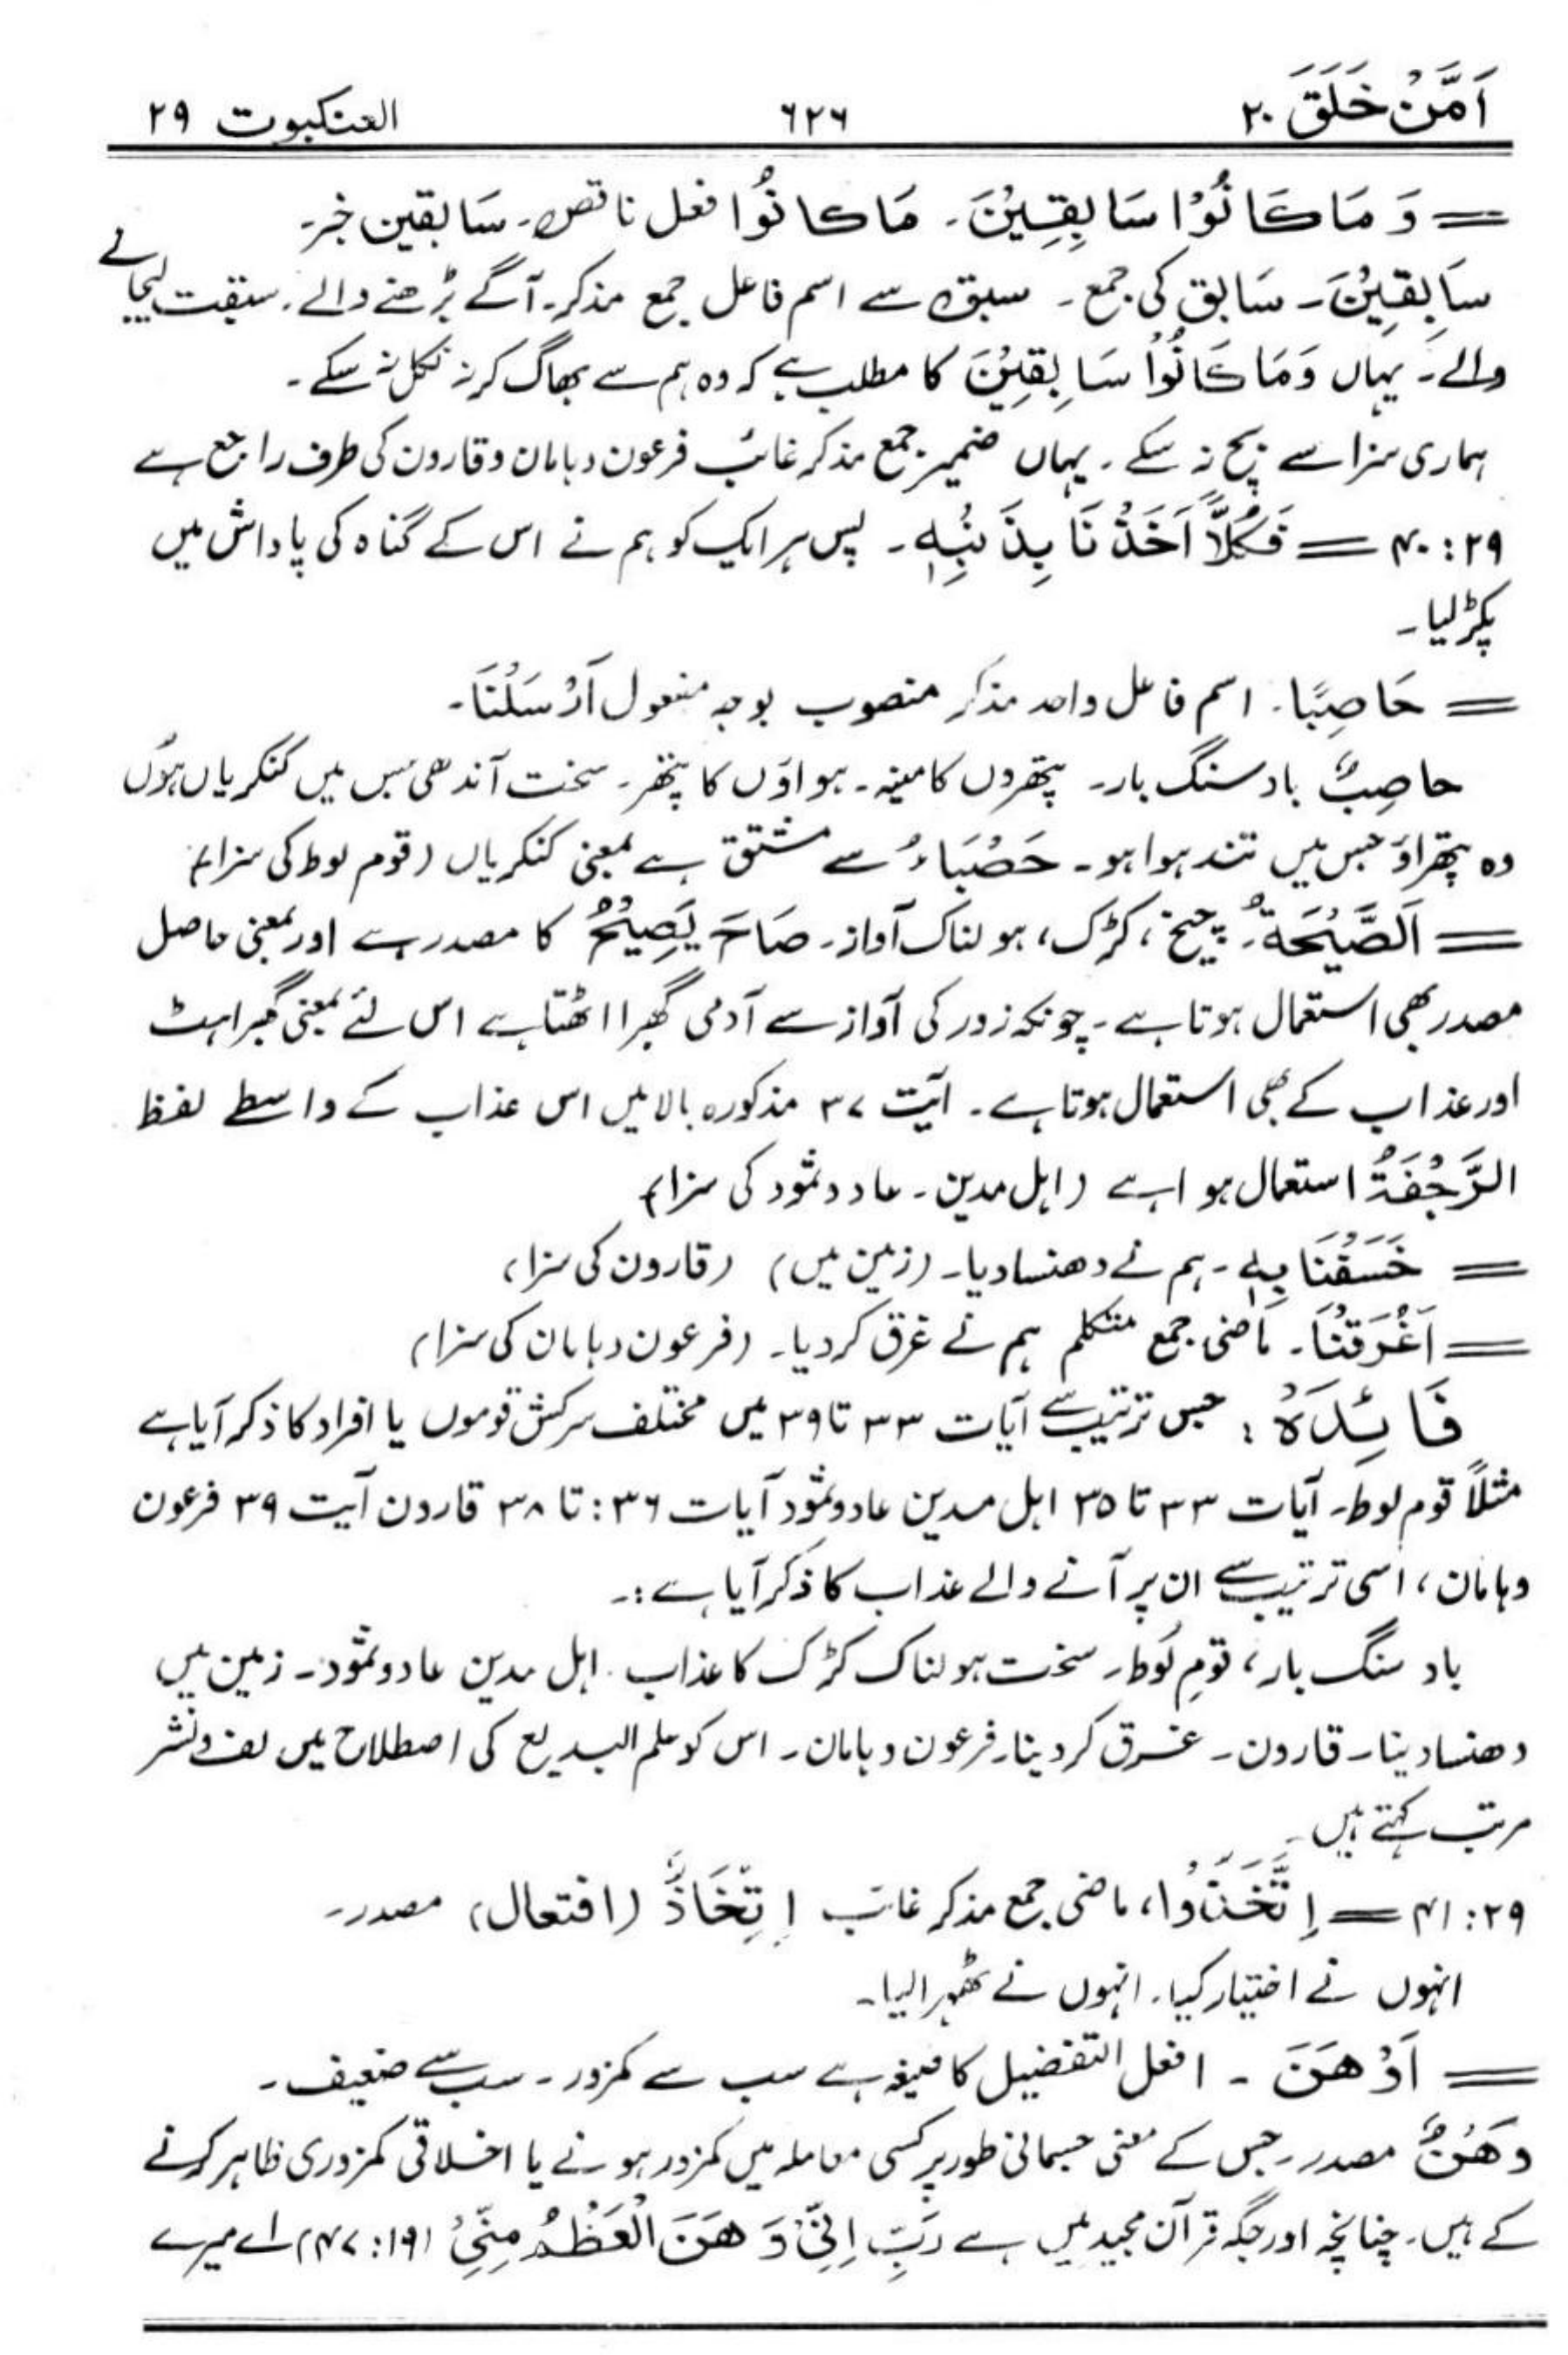 اَمَّنْ خَلَقَ ٢٠ ٦٢٦ العنکبوت ٢٩
= وَ مَا كَانُوْا سَابِقِيْنَ۔ مَا كَانُوْا فعل ناقص۔ سَابقین خبر۔
سَابِقِيْنَ۔ سَابق کی جمع۔ سبق سے اسم فاعل جمع مذکر۔ آگے بڑھنے والے۔ سبقت لیجانے
والے۔ یہاں وَمَا كَانُوْا سَابِقِيْنَ کا مطلب ہے کہ وہ ہم سے بھاگ کر نہ نکل سکے۔
ہماری سزا سے بچ نہ سکے۔ یہاں ضمیر جمع مذکر غائب فرعون وہامان وقارون کی طرف راجع ہے
٢٩: ۴۰ = فَكُلًّا اَخَذْنَا بِذَنْبِهٖ۔ پس ہر ایک کو ہم نے اس کے گناہ کی پاداش میں
پکڑ لیا۔
= حَاصِبًا۔ اسم فاعل واحد مذکر منصوب بوجہ مفعول اَرْسَلْنَا۔
حاصِبٌ باد سنگ بار۔ پتھروں کا مینہ۔ ہواؤں کا پتھر۔ سخت آندھی جس میں کنکریاں ہوں
وہ پتھراؤ جس میں تند ہوا ہو۔ حَصْبَاءُ سے مشتق ہے بمعنی کنکریاں (قوم لوط کی سزا)
= اَلصَّيْحَةُ۔ چیخ، کڑک، ہولناک آواز۔ صَاحَ يَصِيْحُ کا مصدر ہے اور بمعنی حاصل
مصدر بھی استعمال ہوتا ہے۔ چونکہ زور کی آواز سے آدمی گھبرا اٹھتا ہے اس لئے بمعنی گھبراہٹ
اور عذاب کے بھی استعمال ہوتا ہے۔ آیت ٣٧ مذکورہ بالا میں اس عذاب کے واسطے لفظ
الرَّجْفَةُ استعمال ہوا ہے (اہل مدین۔ عاد وثمود کی سزا)
= خَسَفْنَا بِهٖ۔ ہم نے دھنسا دیا۔ (زمین میں) (قارون کی سزا)
= اَغْرَقْنَا۔ ماضی جمع متکلم ہم نے غرق کر دیا۔ (فرعون وہامان کی سزا)
فَائِدَہْ: جس ترتیب سے آیات ٣٣ تا ٣٩ میں مختلف سرکش قوموں یا افراد کا ذکر آیا ہے
مثلاً قوم لوط۔ آیات ٣٣ تا ٣٥ اہل مدین عاد وثمود آیات ٣٦: تا ٣٨ قارون آیت ٣٩ فرعون
وہامان، اسی ترتیب سے ان پر آنے والے عذاب کا ذکر آیا ہے:۔
باد سنگ بار، قومِ لُوط۔ سخت ہولناک کڑک کا عذاب۔ اہل مدین عاد وثمود۔ زمین میں
دھنسا دینا۔ قارون۔ غرق کر دینا۔ فرعون وہامان۔ اس کو علم البدیع کی اصطلاح میں لف ونشر
مرتب کہتے ہیں۔
٢٩: ۴۱ = اِتَّخَذُوْا، ماضی جمع مذکر غائب اِتِّخَاذٌ (افتعال) مصدر۔
انہوں نے اختیار کیا۔ انہوں نے ٹھہرا لیا۔
= اَوْهَنَ۔ افعل التفضیل کا صیغہ ہے سب سے کمزور۔ سب سے ضعیف۔
وَهْنٌ مصدر۔ جس کے معنی جسمانی طور پر کسی معاملہ میں کمزور ہونے یا اخلاقی کمزوری ظاہر کرنے
کے ہیں۔ چنانچہ اور جگہ قرآن مجید میں ہے رَبِّ اِنِّىْ وَهَنَ الْعَظْمُ مِنِّىْ (١٩: ۴٧) اے میرے